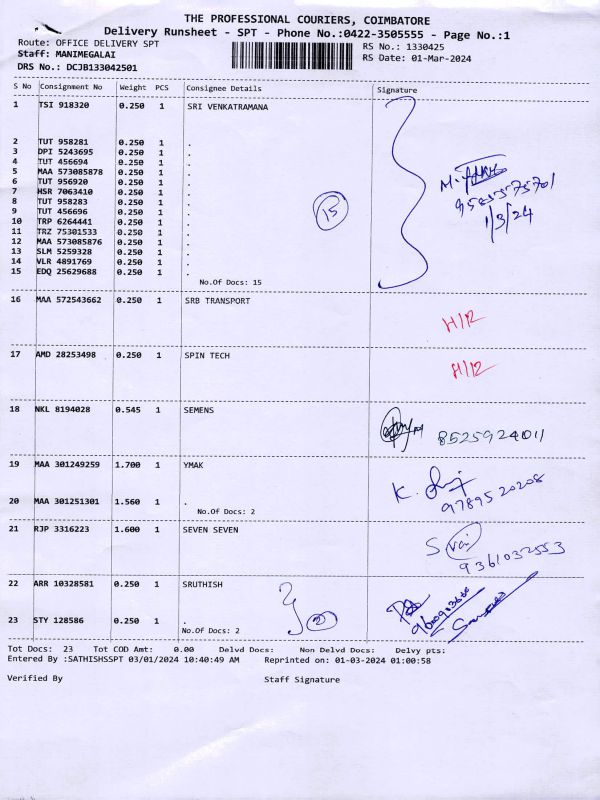 THE PROFESSIONAL COURIERS, COIMBATORE
Delivery Runsheet - SPT - Phone No.:0422-3505555 - Page No.:1
Route: OFFICE DELIVERY SPT RS No.: 1330425
Staff: MANIMEGALAI RS Date: 01-Mar-2024
DRS No.: DCJB133042501
S No Consignment No Weight PCS Consignee Details Signature
1 TSI 918320 0.250 1 SRI VENKATRAMANA
2 TUT 958281 0.250 1 .
3 DPI 5243695 0.250 1 .
4 TUT 456694 0.250 1 .
5 MAA 573085878 0.250 1 .
6 TUT 956920 0.250 1 .
7 HSR 7063410 0.250 1 .
8 TUT 958283 0.250 1 .
9 TUT 456696 0.250 1 .
10 TRP 6264441 0.250 1 .
11 TRZ 75301533 0.250 1 .
12 MAA 573085876 0.250 1 .
13 SLM 5259328 0.250 1 .
14 VLR 4891769 0.250 1 .
15 EDQ 25629688 0.250 1 .
15
9585575701
1/3/24
No.Of Docs: 15
16 MAA 572543662 0.250 1 SRB TRANSPORT
H/12
17 AMD 28253498 0.250 1 SPIN TECH
H/12
18 NKL 8194028 0.545 1 SEMENS
8525924011
19 MAA 301249259 1.700 1 YMAK
K.
9789520208
20 MAA 301251301 1.560 1 .
No.Of Docs: 2
21 RJP 3316223 1.600 1 SEVEN SEVEN
9361032553
22 ARR 10328581 0.250 1 SRUTHISH
23 STY 128586 0.250 1 .
2
No.Of Docs: 2
Tot Docs: 23 Tot COD Amt: 0.00 Delvd Docs: Non Delvd Docs: Delvy pts:
Entered By :SATHISHSSPT 03/01/2024 10:40:49 AM Reprinted on: 01-03-2024 01:00:58
Verified By Staff Signature